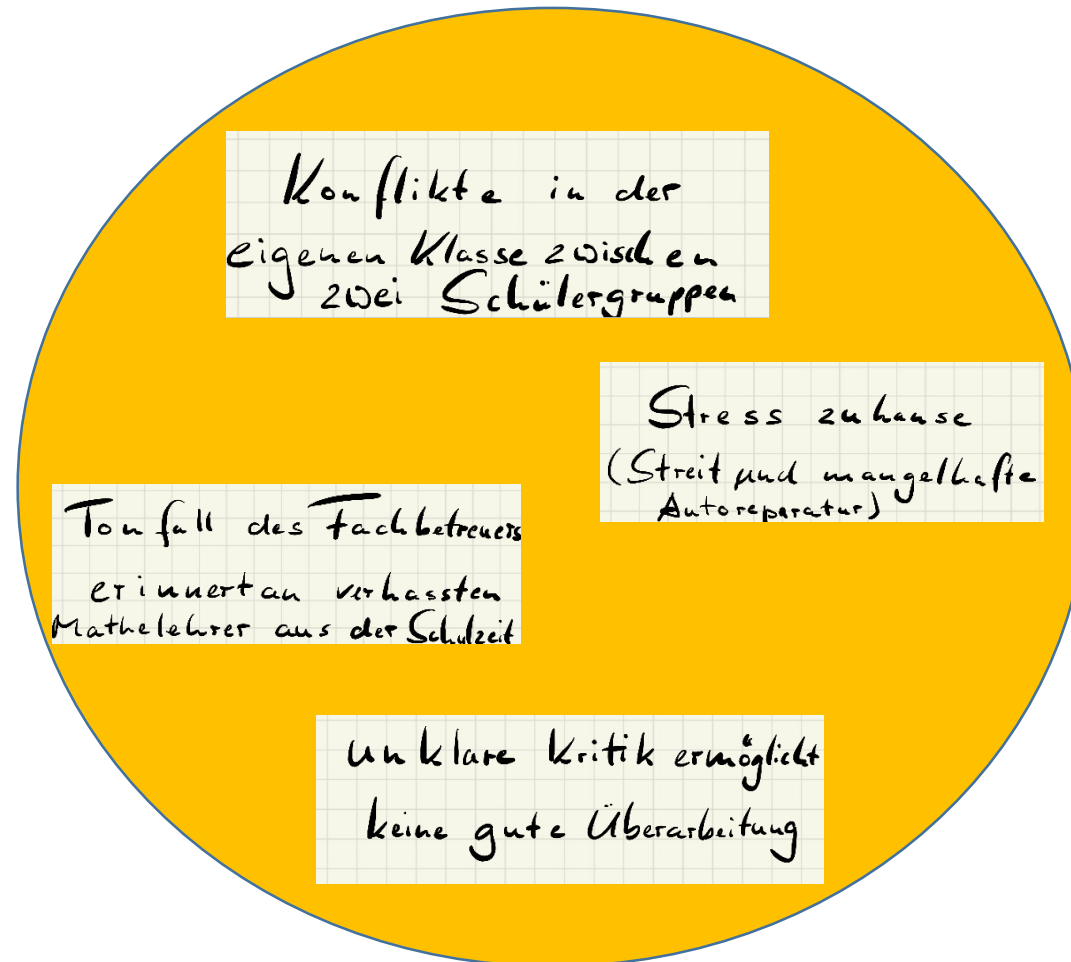 Konflikte in der
eigenen Klasse zwischen
zwei Schülergruppen
Stress zuhause
(Streit und mangelhafte
Autoreparatur)
Tonfall des Fachbetreuers
erinnert an verhassten
Mathelehrer aus der Schulzeit
unklare Kritik ermöglicht
keine gute Überarbeitung